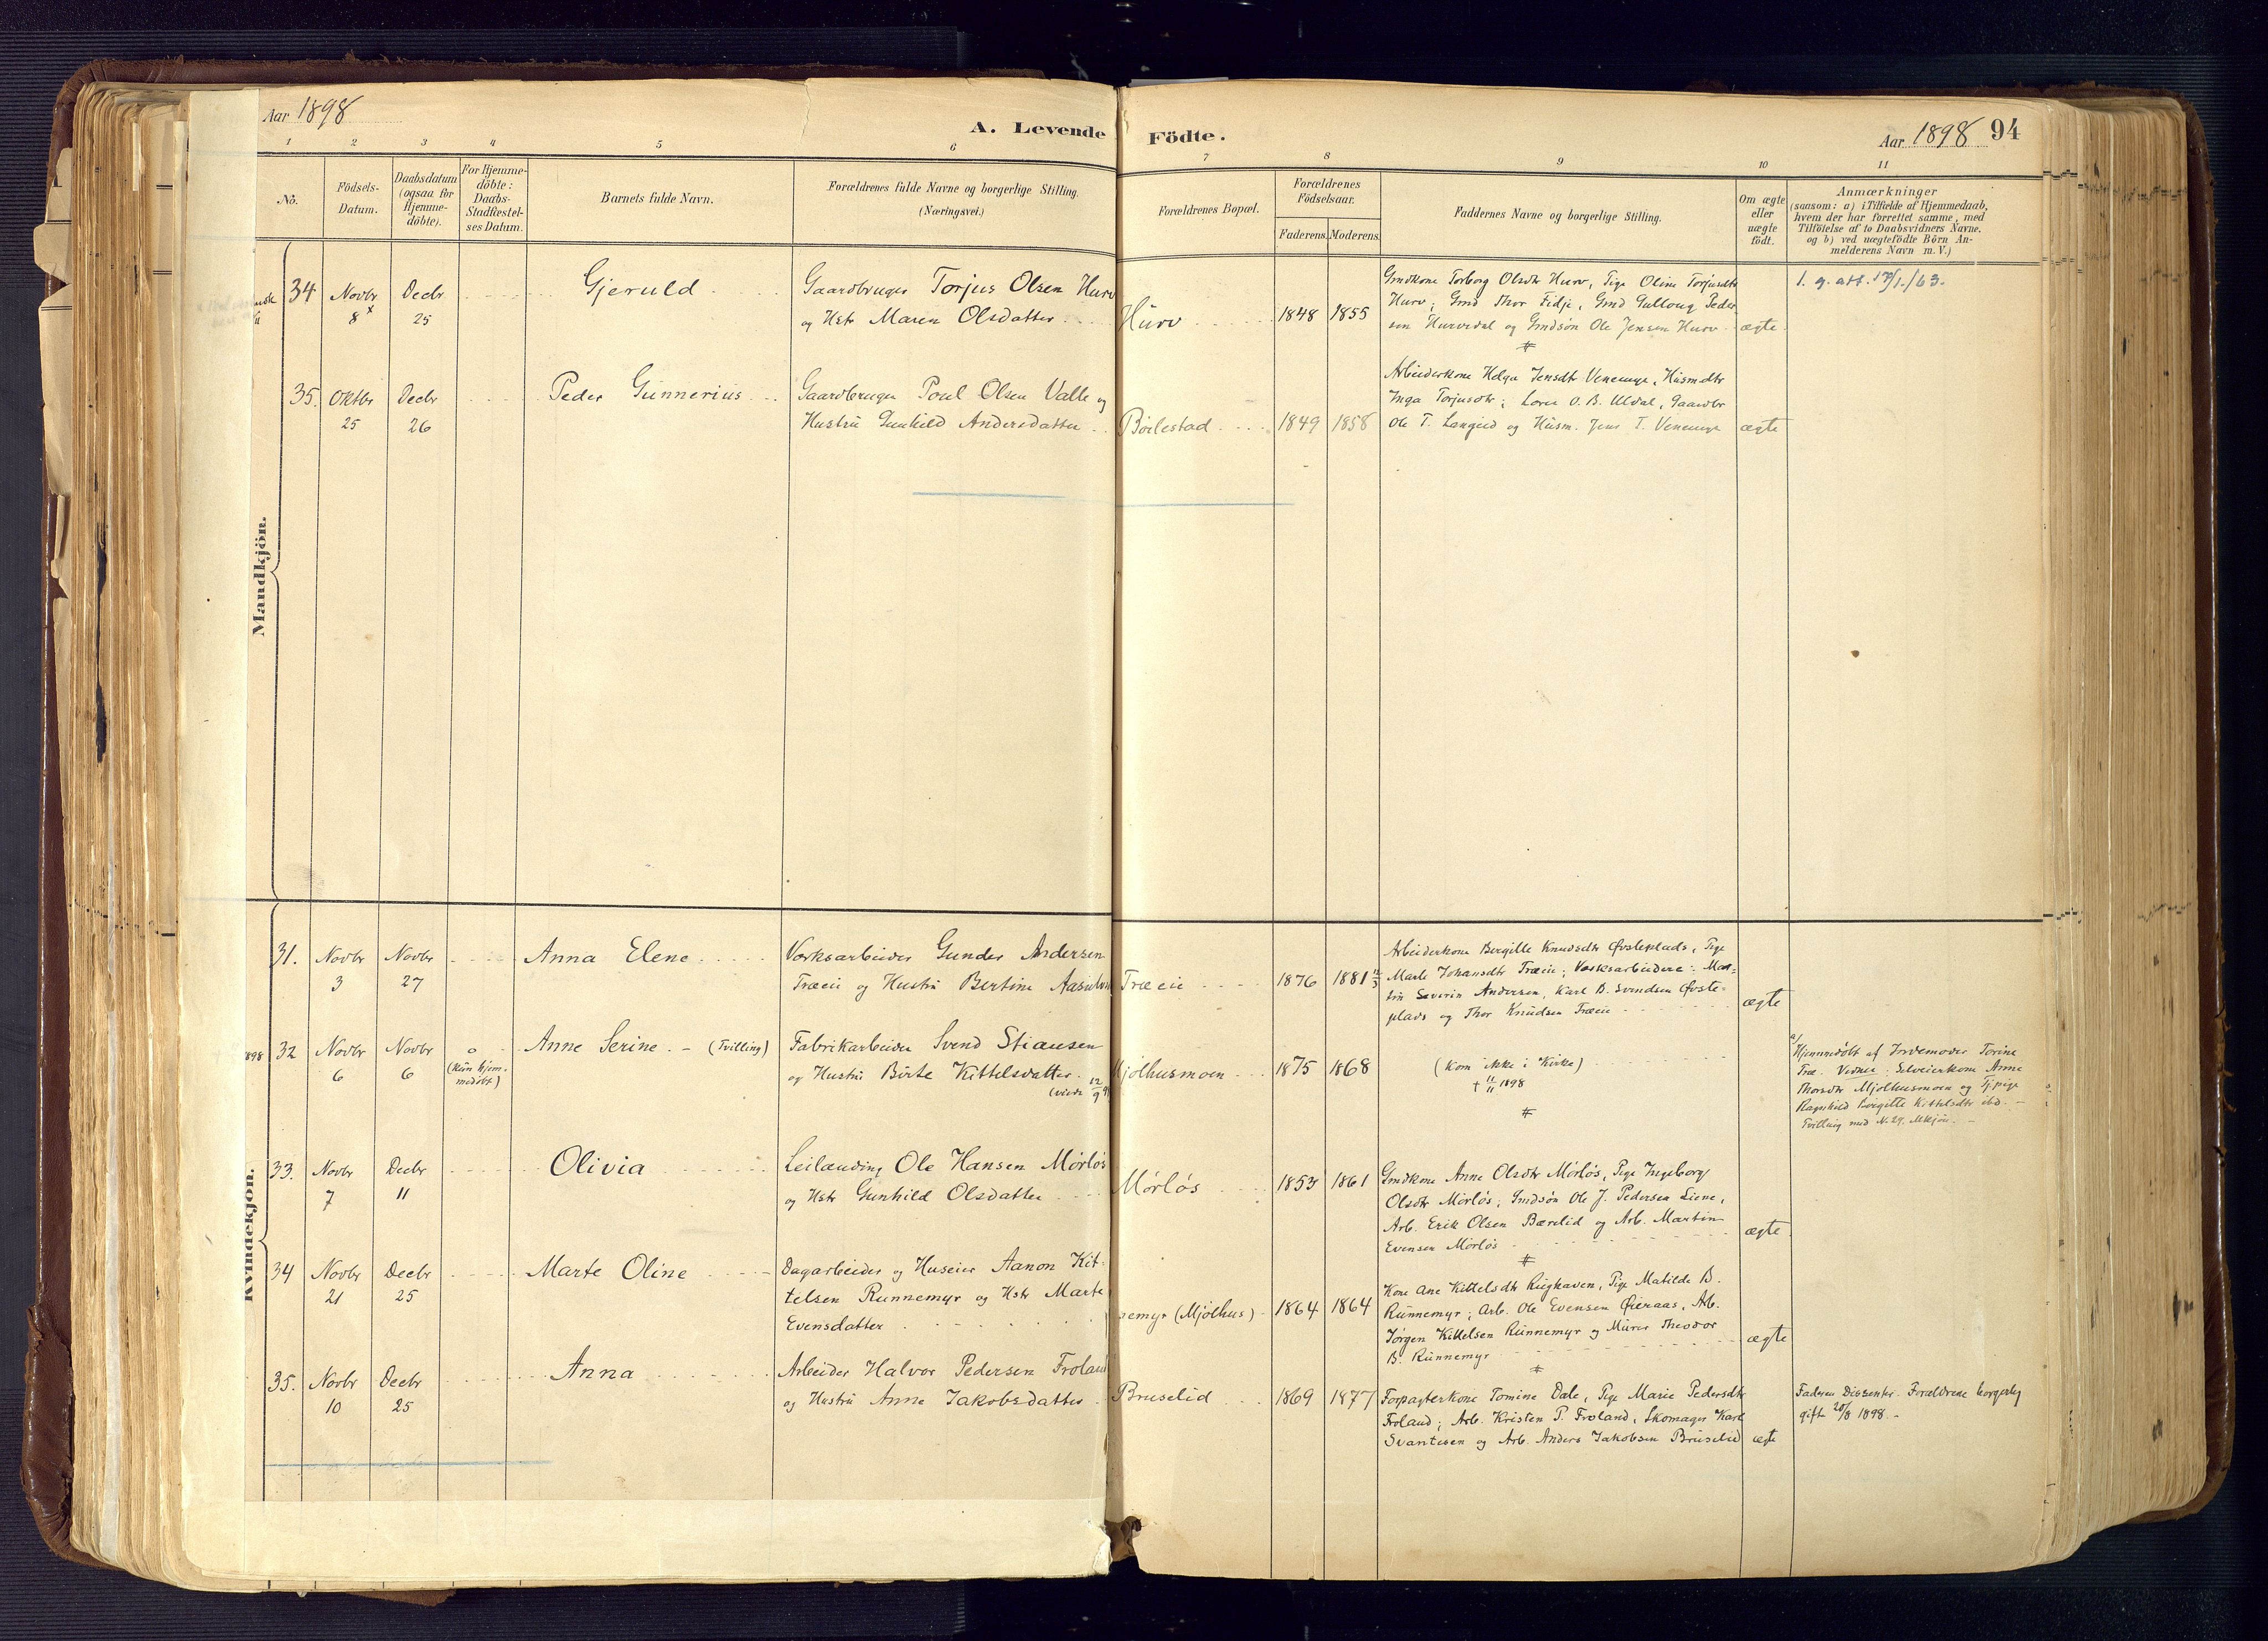 Aar 1898
A. Levende Födte.
Aar 1898 94
1 2 3 4 5 6 7 8 9 10 11
No.
Födsels-
Datum.
Daabsdatum
(ogsaa for
Hjemme-
döbte).
For Hjemme-
döbte:
Daabs-
Stadfæstel-
ses Datum.
Barnets fulde Navn.
Forældrenes fulde Navne og borgerlige Stilling.
(Næringsvei.)
Forældrenes Bopæl.
Forældrenes
Födselsaar.
Faderens. Moderens.
Faddernes Navne og borgerlige Stilling.
Om ægte
eller
uægte
födt.
Anmærkninger
(saasom: a) i Tilfælde af Hjemmedaab,
hvem der har forrettet samme, med
Tilföielse af to Daabsvidners Navne.
og b) ved uægtefödte Börn An-
melderens Navn m. V.)
Mandkjön.
34 Novbr 8 Decbr 25
Gjeruld
Gaardbruger Torjus Olsen Hurv
og Hstr Maren Olsdatter
Hurv 1848 1855
Gmdkone Torborg Olsdtr Hurv, Pige Oline Torjusdtr
Hurv; Gmd Thor Fidje, Gmd Gulloug Peder-
sen Hurvedal og Gmdsøn Ole Jensen Hurv
ægte
1. g. att. 17/1./63.
35. Oktbr 25 Decbr 26
Peder Gunnerius
Gaardbruger Poul Olsen Valle og
Hustru Gunhild Andersdatter
Bøilestad 1849 1858
Arbeiderkone Helga Jensdtr Venemyr, Husmdtr
Inga Torjusdtr; O. B. Uldal, Gaardbr
Ole T. Langeid og Husm. Jens T. Venemyr
ægte
Kvindekjön.
31. Novbr 3 Novbr 27
Anna Elene
Værksarbeider Gunder Andersen
Træeie og Hustru Bertine
Træeie 1876 1881 12/3
Arbeiderkone Bergitte Knudsdtr Øvsteplads, Pige
Marte Johansdtr Træeie; Værksarbeidere: Mar-
tin Severin Andersen, Karl B. Svendsen Øvste-
plads og Thor Knudsen Træeie
ægte
32 Novbr 6 Novbr 6
0
(kun hjem-
medøbt)
Anne Serine (Tvilling)
Fabrikarbeider Svend Stiansen
og Hustru Birte Kittelsdatter
(viede 12/9
Mjölhusmoen 1875 1868
(kom ikke i Kirke)
† 11/11 1898
a/
Hjemmedøbt af Jordemoder Torine
Træ. Vidner: Selveierkone Anne
Thorsdtr Mjölhusmoen og Tjpige
Ragnhild Birgitte Kittelsdtr ibd.
Tvilling med N. 29. Mkjøn.
33. Novbr 7 Decbr 11
Olivia
Leilænding Ole Hansen Mørløs
og Hstr Gunhild Olsdatter
Mørløs 1853 1861
Gmdkone Anne Olsdtr Mørløs, Pige Ingeborg
Olsdtr Mørløs; Gmdsøn Ole J. Pedersen Liene,
Arb. Erik Olsen Bærelid og Arb. Martin
Evensen Mørløs
ægte
34 Novbr 21 Decbr 25
Marte Oline
Dagarbeider og Huseier Aanon Kit-
telsen Runnemyr og Hstr Marte
Evensdatter
emyr (Mjölhus) 1864 1864
Kone Ane Kittelsdtr Rughaven, Pige Matilde B.
Runnemyr; Arb. Ole Evensen Øieraas, Arb.
Jørgen Kittelsen Runnemyr og Murer Theodor
B. Runnemyr
ægte
35. Novbr 10 Decbr 25
Anna
Arbeider Halvor Pedersen Froland
og Hustru Anne Jakobsdatter
Bruselid 1869 1877
Forpagterkone Tomine Dale, Pige Marie Pedersdtr
Froland; Arb. Kristen P. Froland, Skomager Karl
Svantesen og Arb. Anders Jakobsen Bruselid
ægte
Faderen Dissenter. Forældrene borgerlig
gift 20/8 1898.